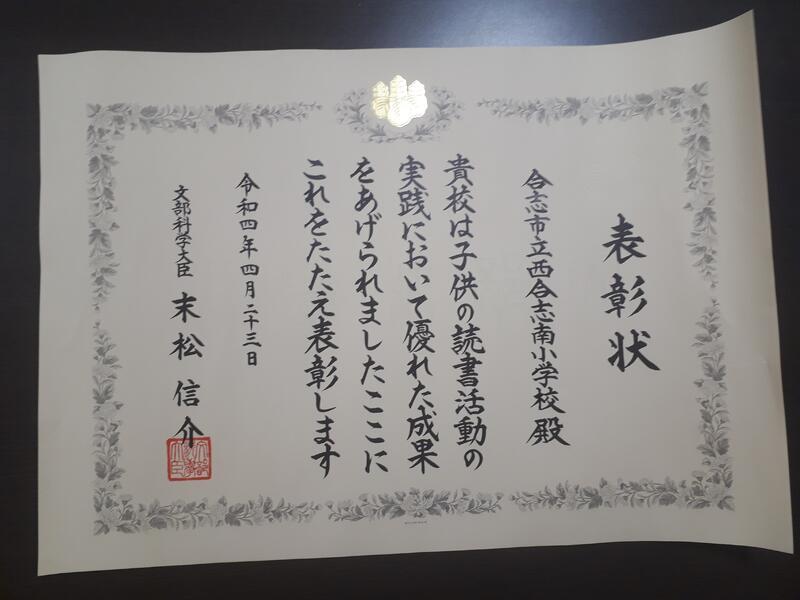 表彰状
合志市立西合志南小学校殿
貴校は子供の読書活動の
実践において優れた成果
をあげられましたここに
これをたたえ表彰します
令和四年四月二十三日
文部科学大臣 末松信介